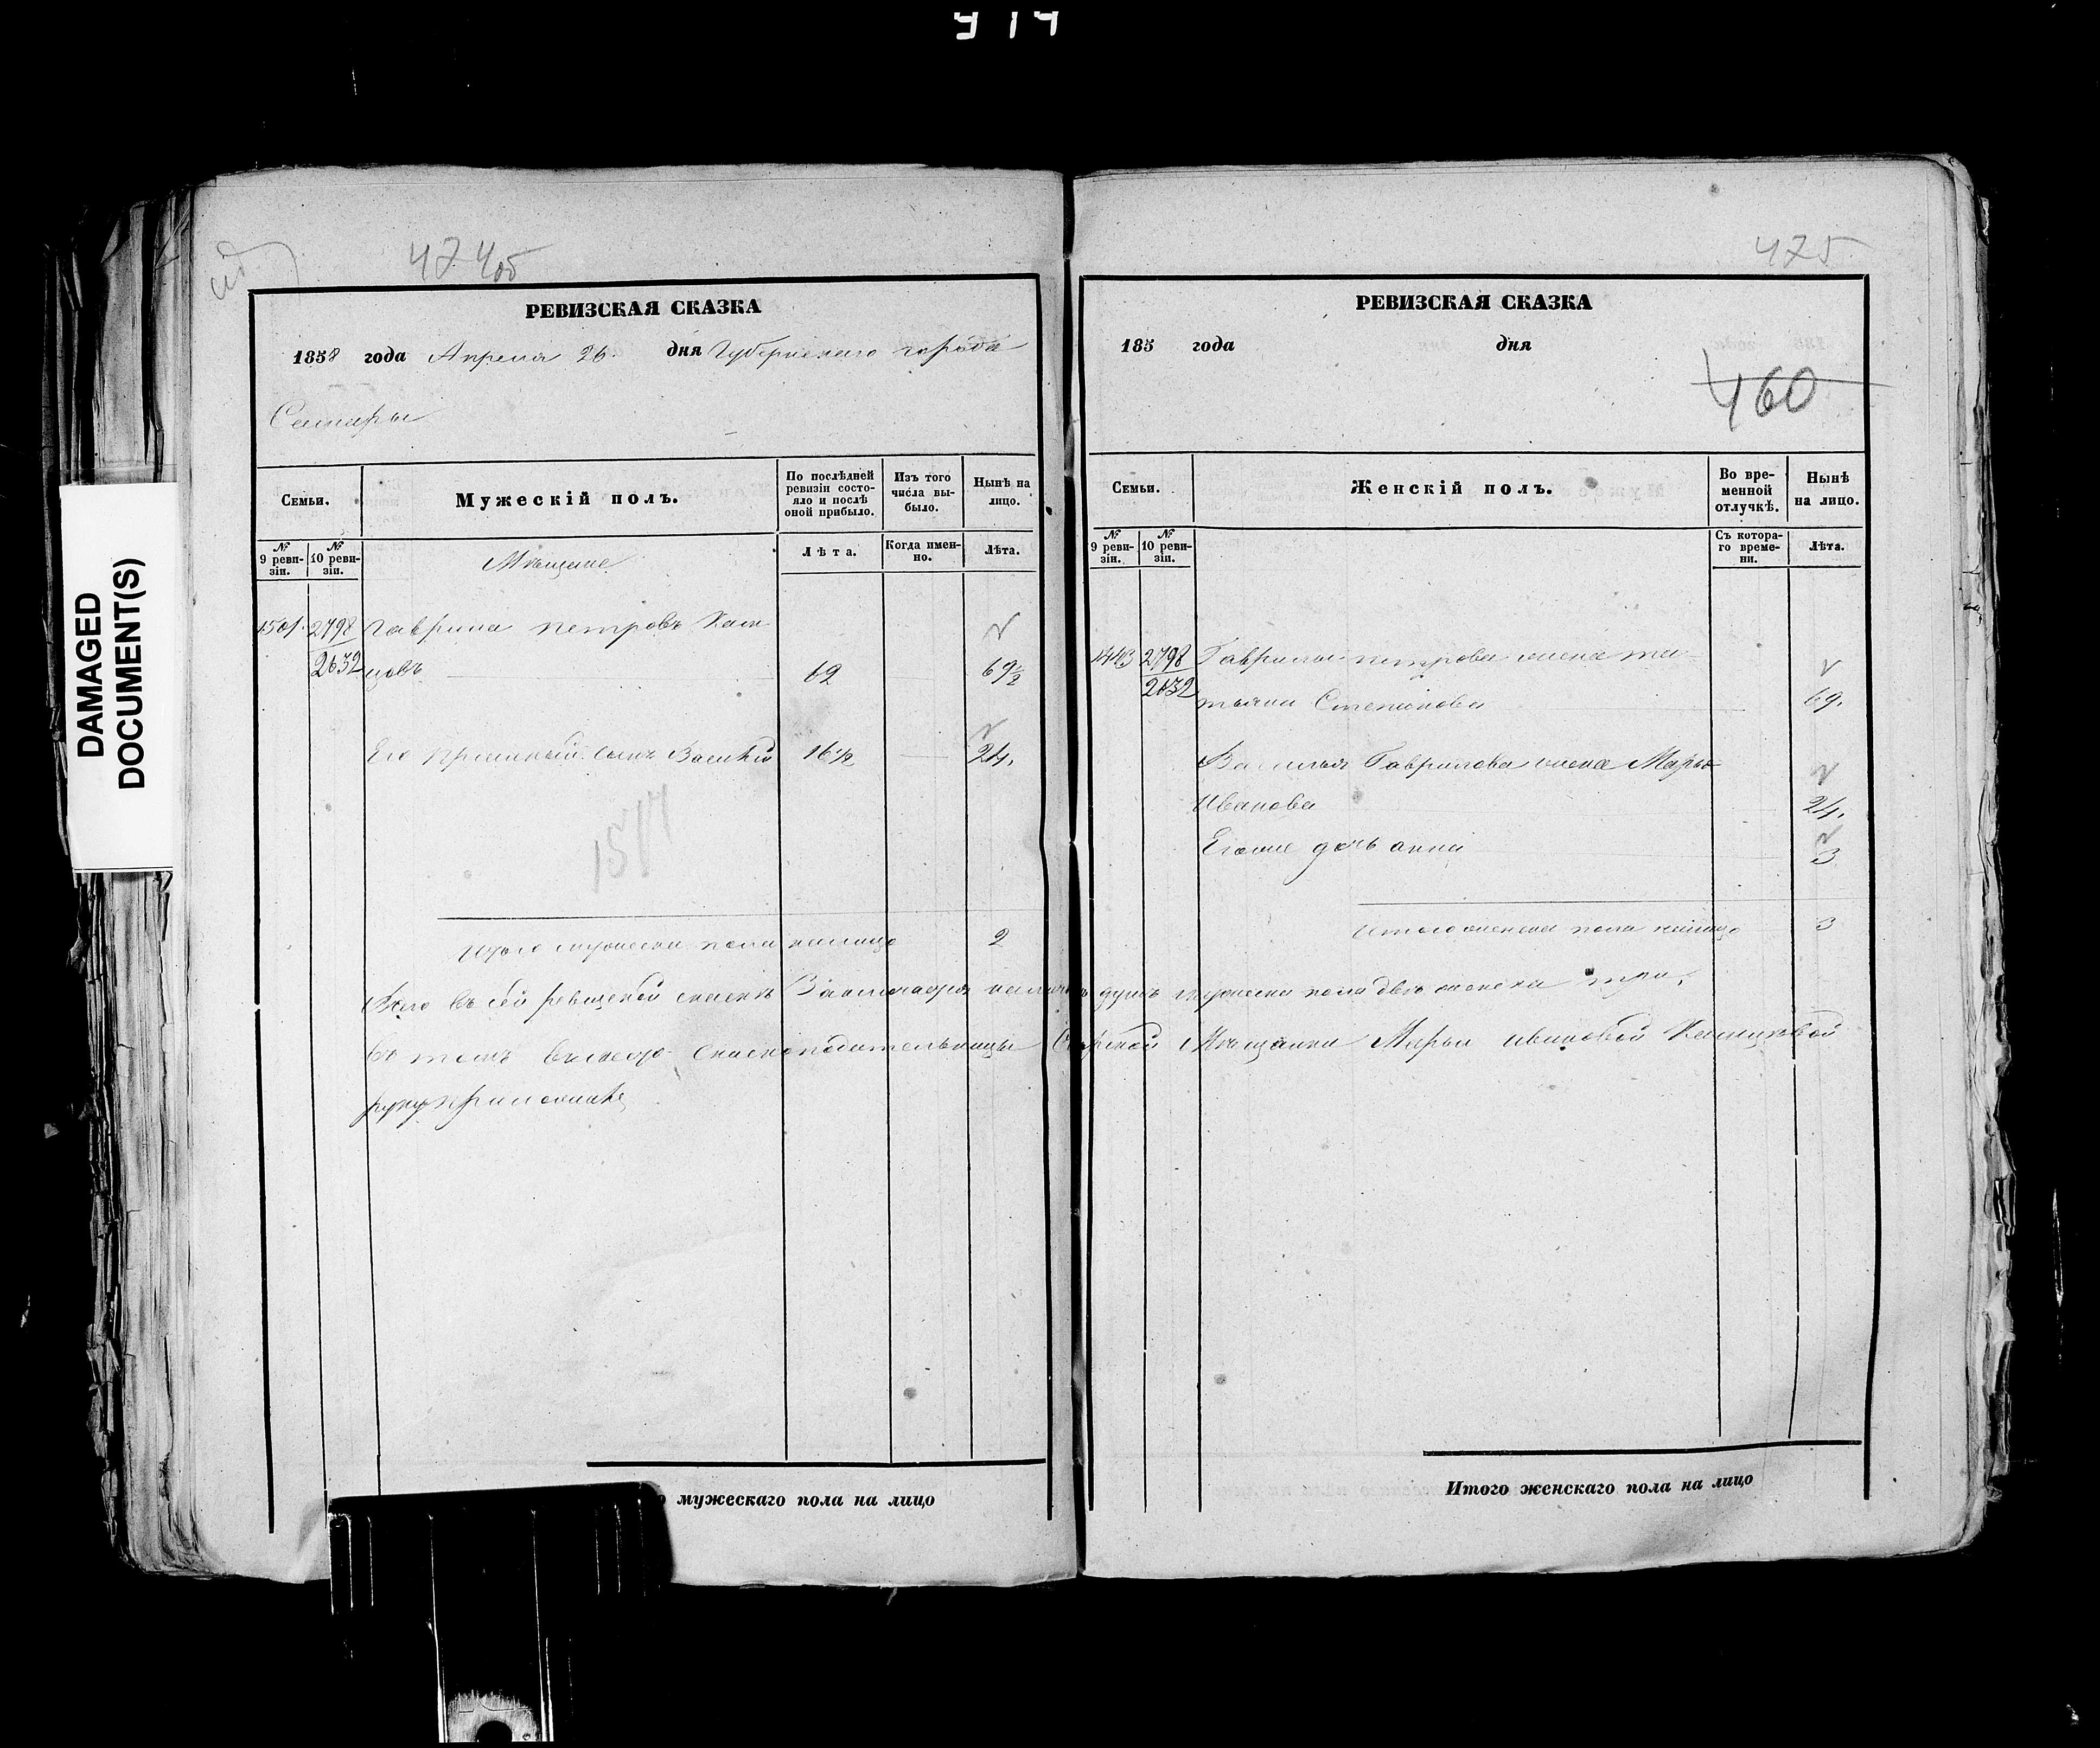 474об
РЕВИЗСКАЯ СКАЗКА
1858 года Апреля 26 дня Губернскаго города
Самары
Семьи.
Мужескій полъ.
По послѣдней ревизіи состояло и послѣ оной прибыло.
Изъ того числа выбыло.
Нынѣ на лицо.
№ 9 ревизіи.
№ 10 ревизіи.
Мѣщане
Лѣта.
Когда именно.
Лѣта.
1501. 2798 Гаврила петровъ
2632 62 69½
Его приемный сынъ Василий 16½ 24.
Итого мужеска пола налицо 2
475
РЕВИЗСКАЯ СКАЗКА
185 года дня
460
Семьи.
Женскій полъ.
Во временной отлучкѣ.
Нынѣ на лицо.
№ 9 ревизіи.
№ 10 ревизіи.
Съ котораго времени.
Лѣта.
1443 2798 Гаврилы петрова жена та-
2632 тьяна Степанова 69.
Василья Гаврилова жена Марья
Иванова 24.
Егоже дочь анна 3
Итого женска пола налицо 3
Всего въ сей ревизской сказкѣ Заключается душъ мужеска пола двѣ женска три,
въ томъ вместо сказкоподательницы Мѣщанки Марьи ивановой
руку приложилъ
о мужескаго пола на лицо
Итого женскаго пола на лицо
DAMAGED
DOCUMENT(S)